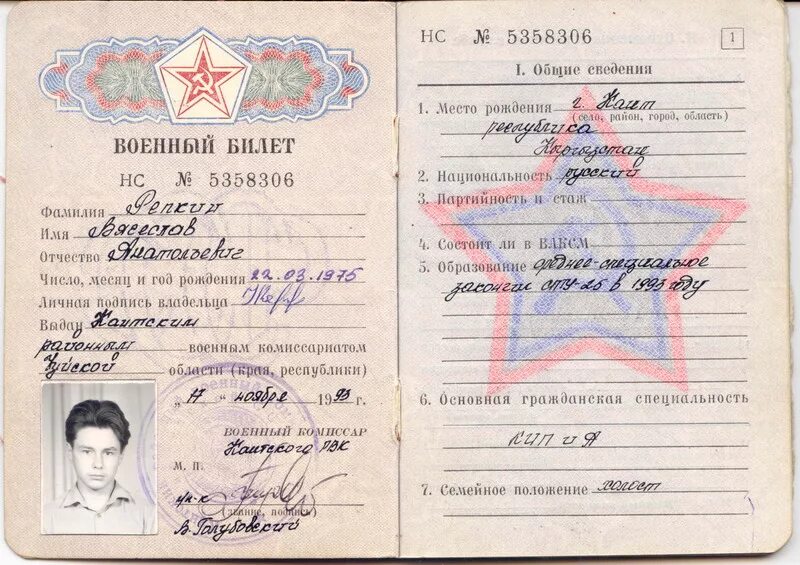 ВОЕННЫЙ БИЛЕТ
НС № 5358306
Фамилия Репкин
Имя Вячеслав
Отчество Анатольевич
Число, месяц и год рождения 22.03.1975
Личная подпись владельца
Выдан Кантским
районным военным комиссариатом
Чуйской области (края, республики)
„ 17 " ноября 1993 г.
ВОЕННЫЙ КОМИССАР
Кантского РВК
М. П.
(звание, подпись)
В. Голубовский
НС № 5358306 1
I. Общие сведения
1. Место рождения г. Кант
(село, район, город, область)
республика
Кыргызстан
2. Национальность русский
3. Партийность и стаж
4. Состоит ли в ВЛКСМ
5. Образование средне-специальное
закончил СПТУ-26 в 1993 году
6. Основная гражданская специальность
КИП и А
7. Семейное положение холост